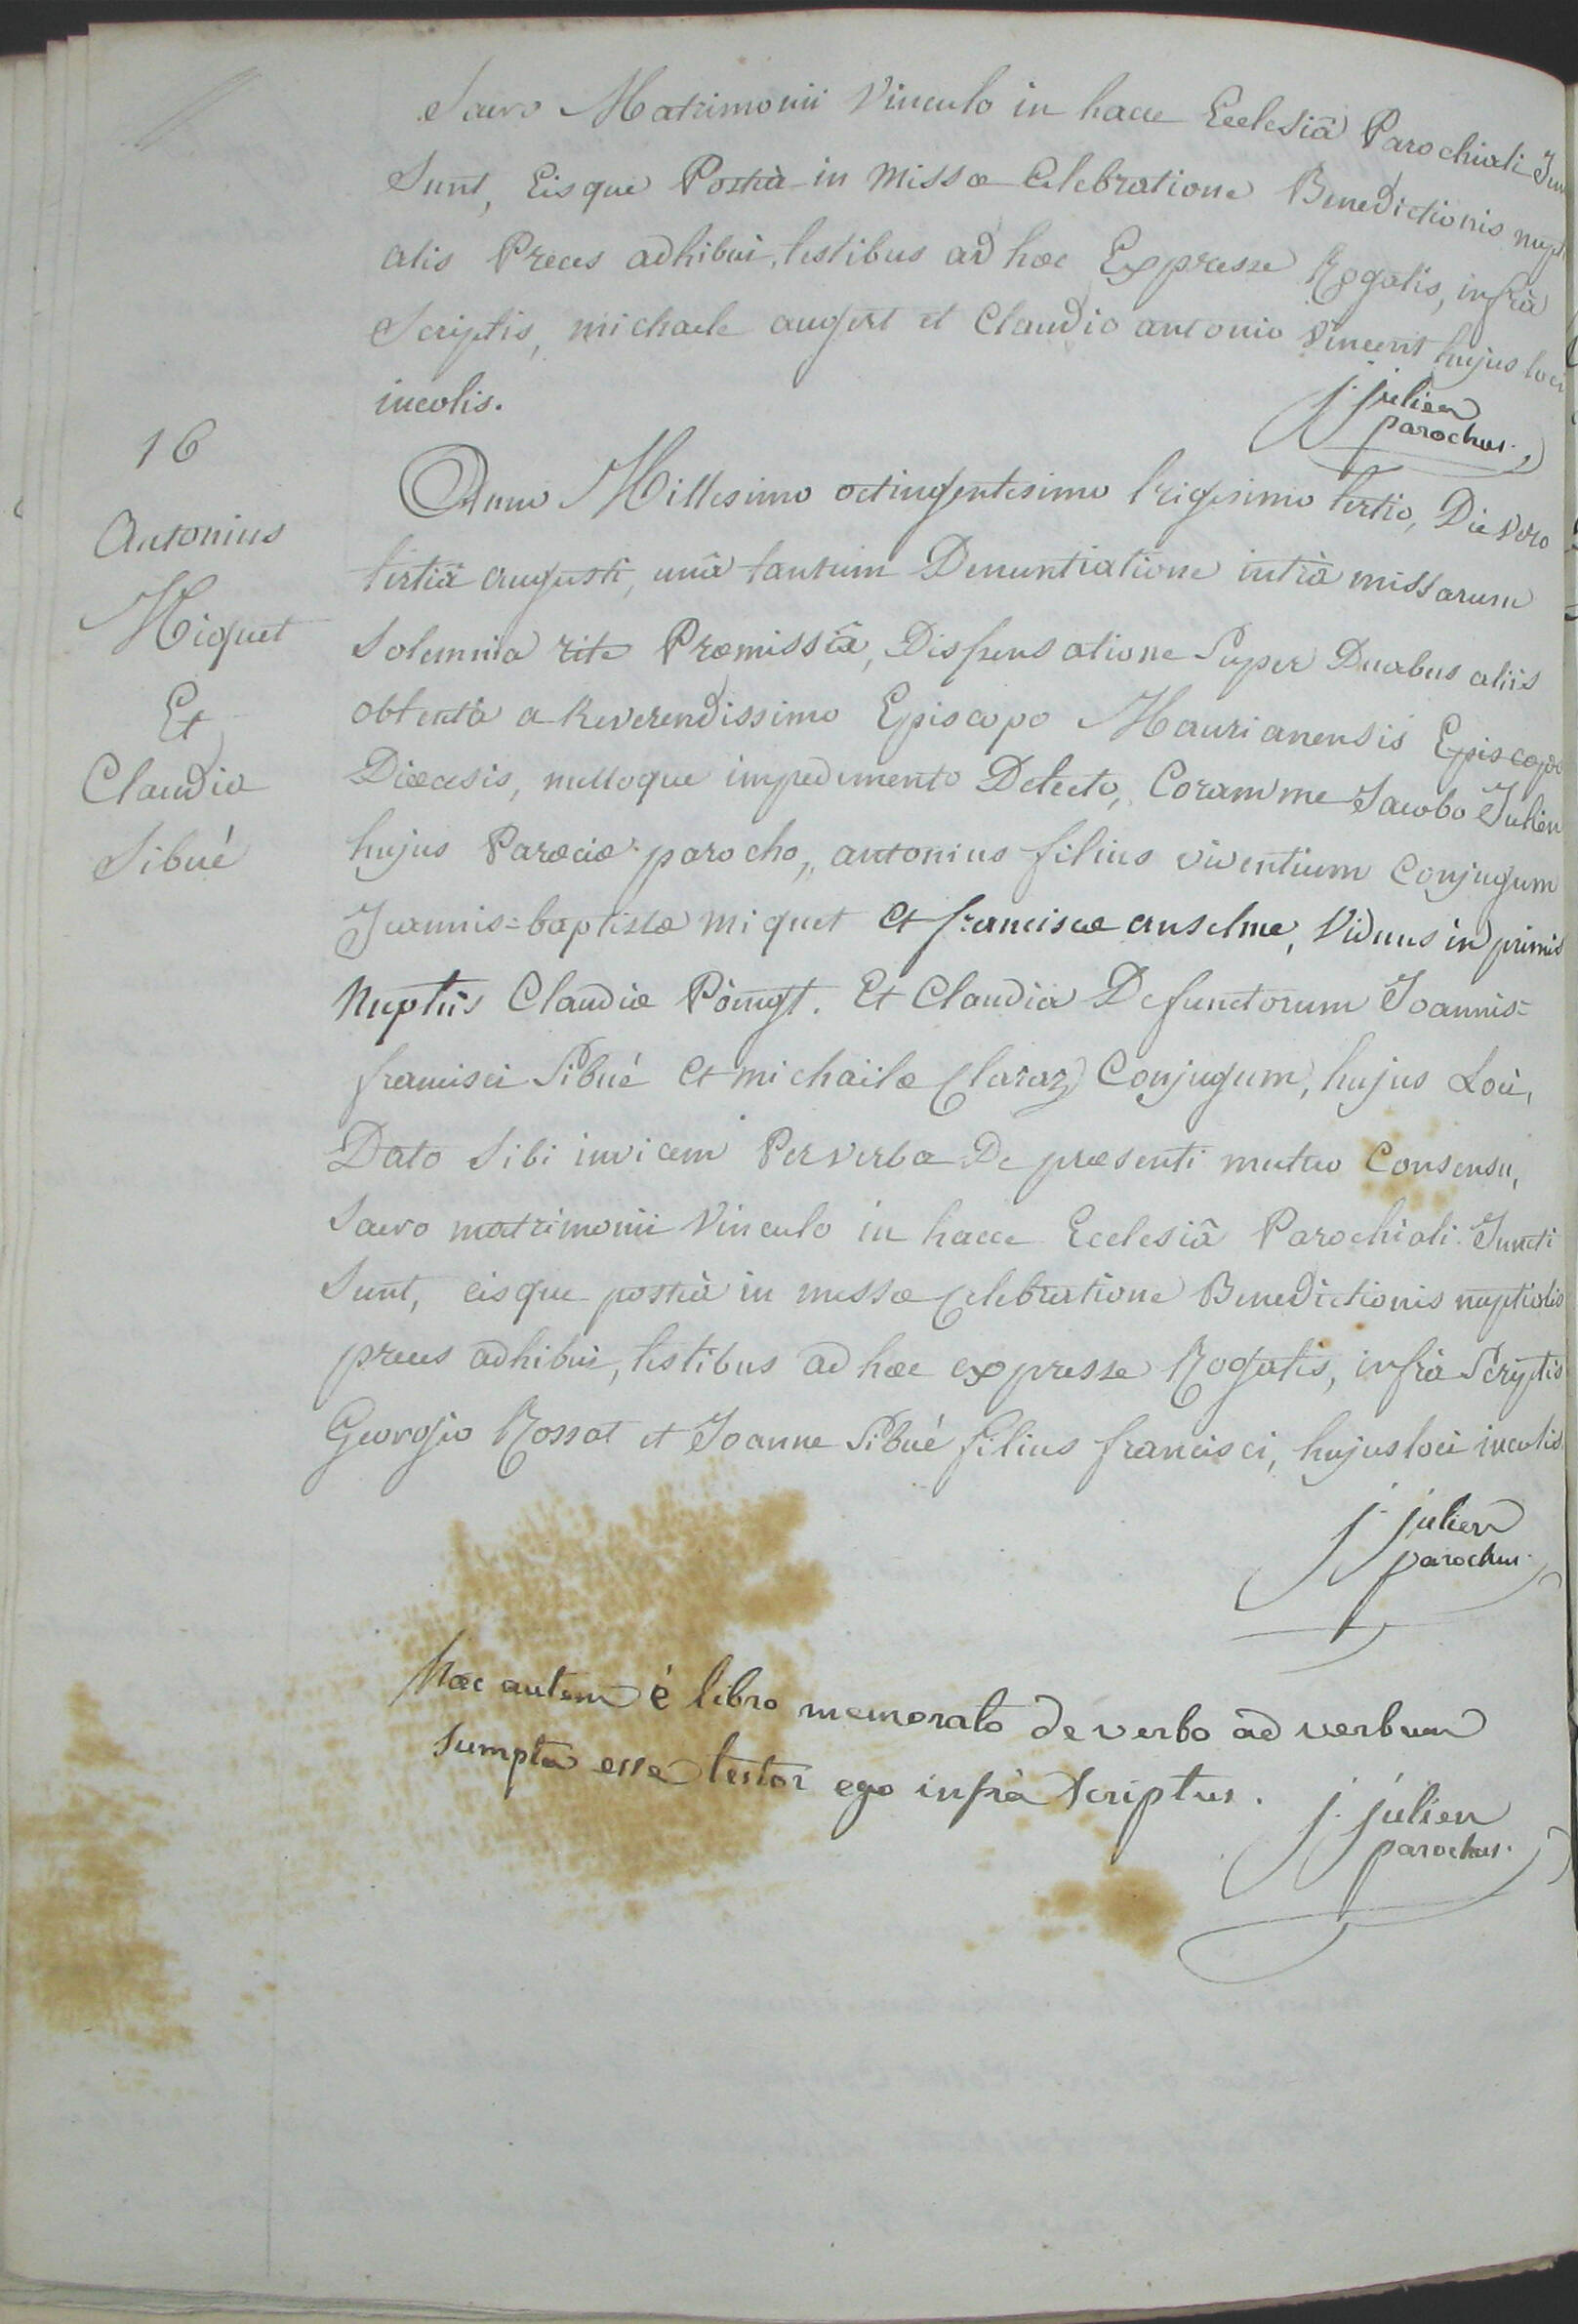 Sacro Matrimonii Vinculo in hacce Ecclesiâ Parochiali Jun
Sunt, Eisque Posteà in Missæ Celebratione Benedictionis nupti
alis Preces adhibui, testibus ad hoc Expresse Rogatis, infrà
Scriptis, michaele augert et Claudio antonio Vincent hujus loci
incolis.
j. julien
parochus.
16
Antonius
Miquet
Et
Claudia
Sibué
Anno Millesimo octingentesimo trigesimo tertio, Die Vero
tertiâ augusti, unâ tantum Denuntiatione intrà missarum
Solemnia rite Præmissâ, Dispensatione Super Duabus aliis
obtentâ a Reverendissimo Episcopo Maurianensis Episcopo
Diœcesis, nulloque impedimento Detecto, Coram me Jacobo Julien
hujus Parœciæ parocho, antonius filius viventium Conjugum
Joannis=baptistæ miquet et franciscæ anselme, Viduus in primis
Nuptiis Claudiæ. Et Claudia Defunctorum Joannis=
francisci Sibué et michailæ Claraz Conjugum, hujus Loci,
Dato Sibi invicem Per verba De præsenti mutuo Consensu,
Sacro matrimonii Vinculo in hacce Ecclesiâ Parochiali Juncti
Sunt, eisque posteà in missæ Celebratione Benedictionis nuptialis
preces adhibui, testibus ad hoc expresse Rogatis, infrà Scriptis
Georgio Rossat et Joanne Sibué filius francisci, hujus loci incolis
j. julien
parochus.
Hæc autem è libro memorato de verbo ad verbum
Sumpta esse testor ego infrà Scriptus.
j. julien
parochus.